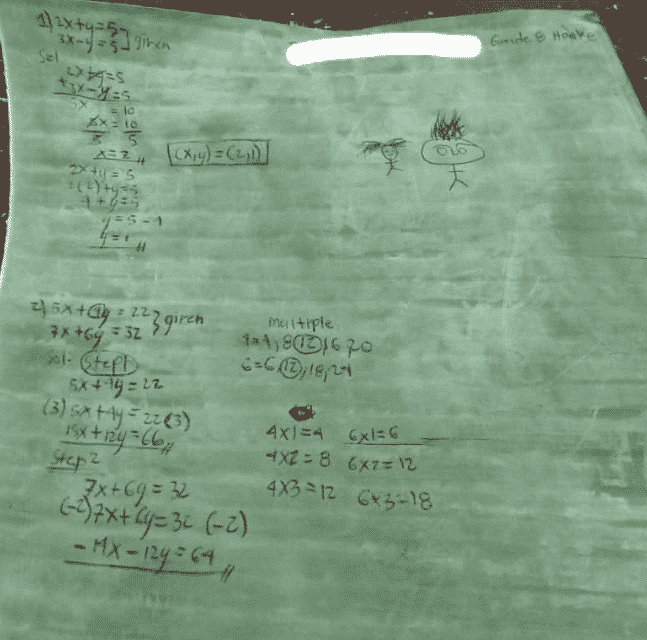 1) 2x+y=5
3x-y=5 } given
Grade 8 Hooke
Sol
2x+y=5
+3x-y=5
5x = 10
5x = 10
5 5
x=2 //
(x,y) = (2,1)
2x+y=5
2(2)+y=5
4+y=5
y=5-4
y=1 //
2) 5x+4y=22
7x+6y=32 } given
Sol- Step1
5x+4y=22
(3) 5x+4y=22(3)
15x+12y=66 //
Step 2
7x+6y=32
(-2)7x+6y=32 (-2)
-14x-12y=64 //
multiple
4=4,8,12,16,20
6=6,12,18,24
4x1=4 6x1=6
4x2=8 6x2=12
4x3=12 6x3=18